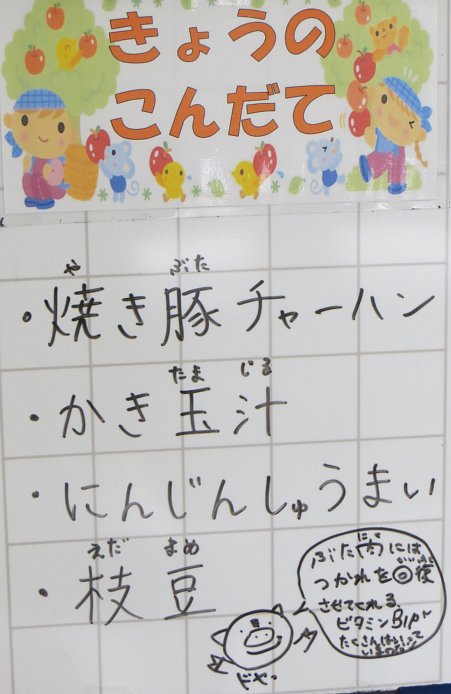 きょうの
こんだて
や ぶた
・焼き豚チャーハン
たま じる
・かき玉汁
・にんじんしゅうまい
えだ まめ
・枝豆
にく
ぶた肉には
かいふく
つかれを回復
させてくれる
ビタミンB1が
たくさんはいって
いるのだ!
ドヤー